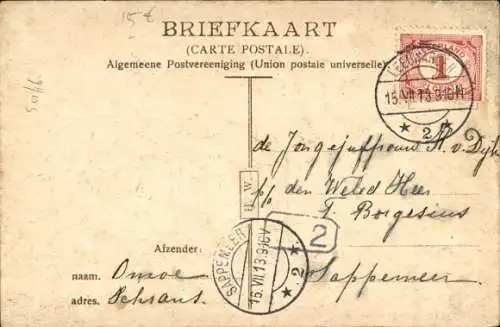 15 €
BRIEFKAART
(CARTE POSTALE).
Algemeene Postvereeniging (Union postale universelle).
1
15.VII.13.9-10N
* 2 *
de Jongejuffrouw A. v. Dijk
p/a den Weled Heer
T. Borgesius
Sappemeer
U. W.
2
SAPPEMEER
16.VII.13.9-10V
* 2 *
Afzender:
naam.
adres.